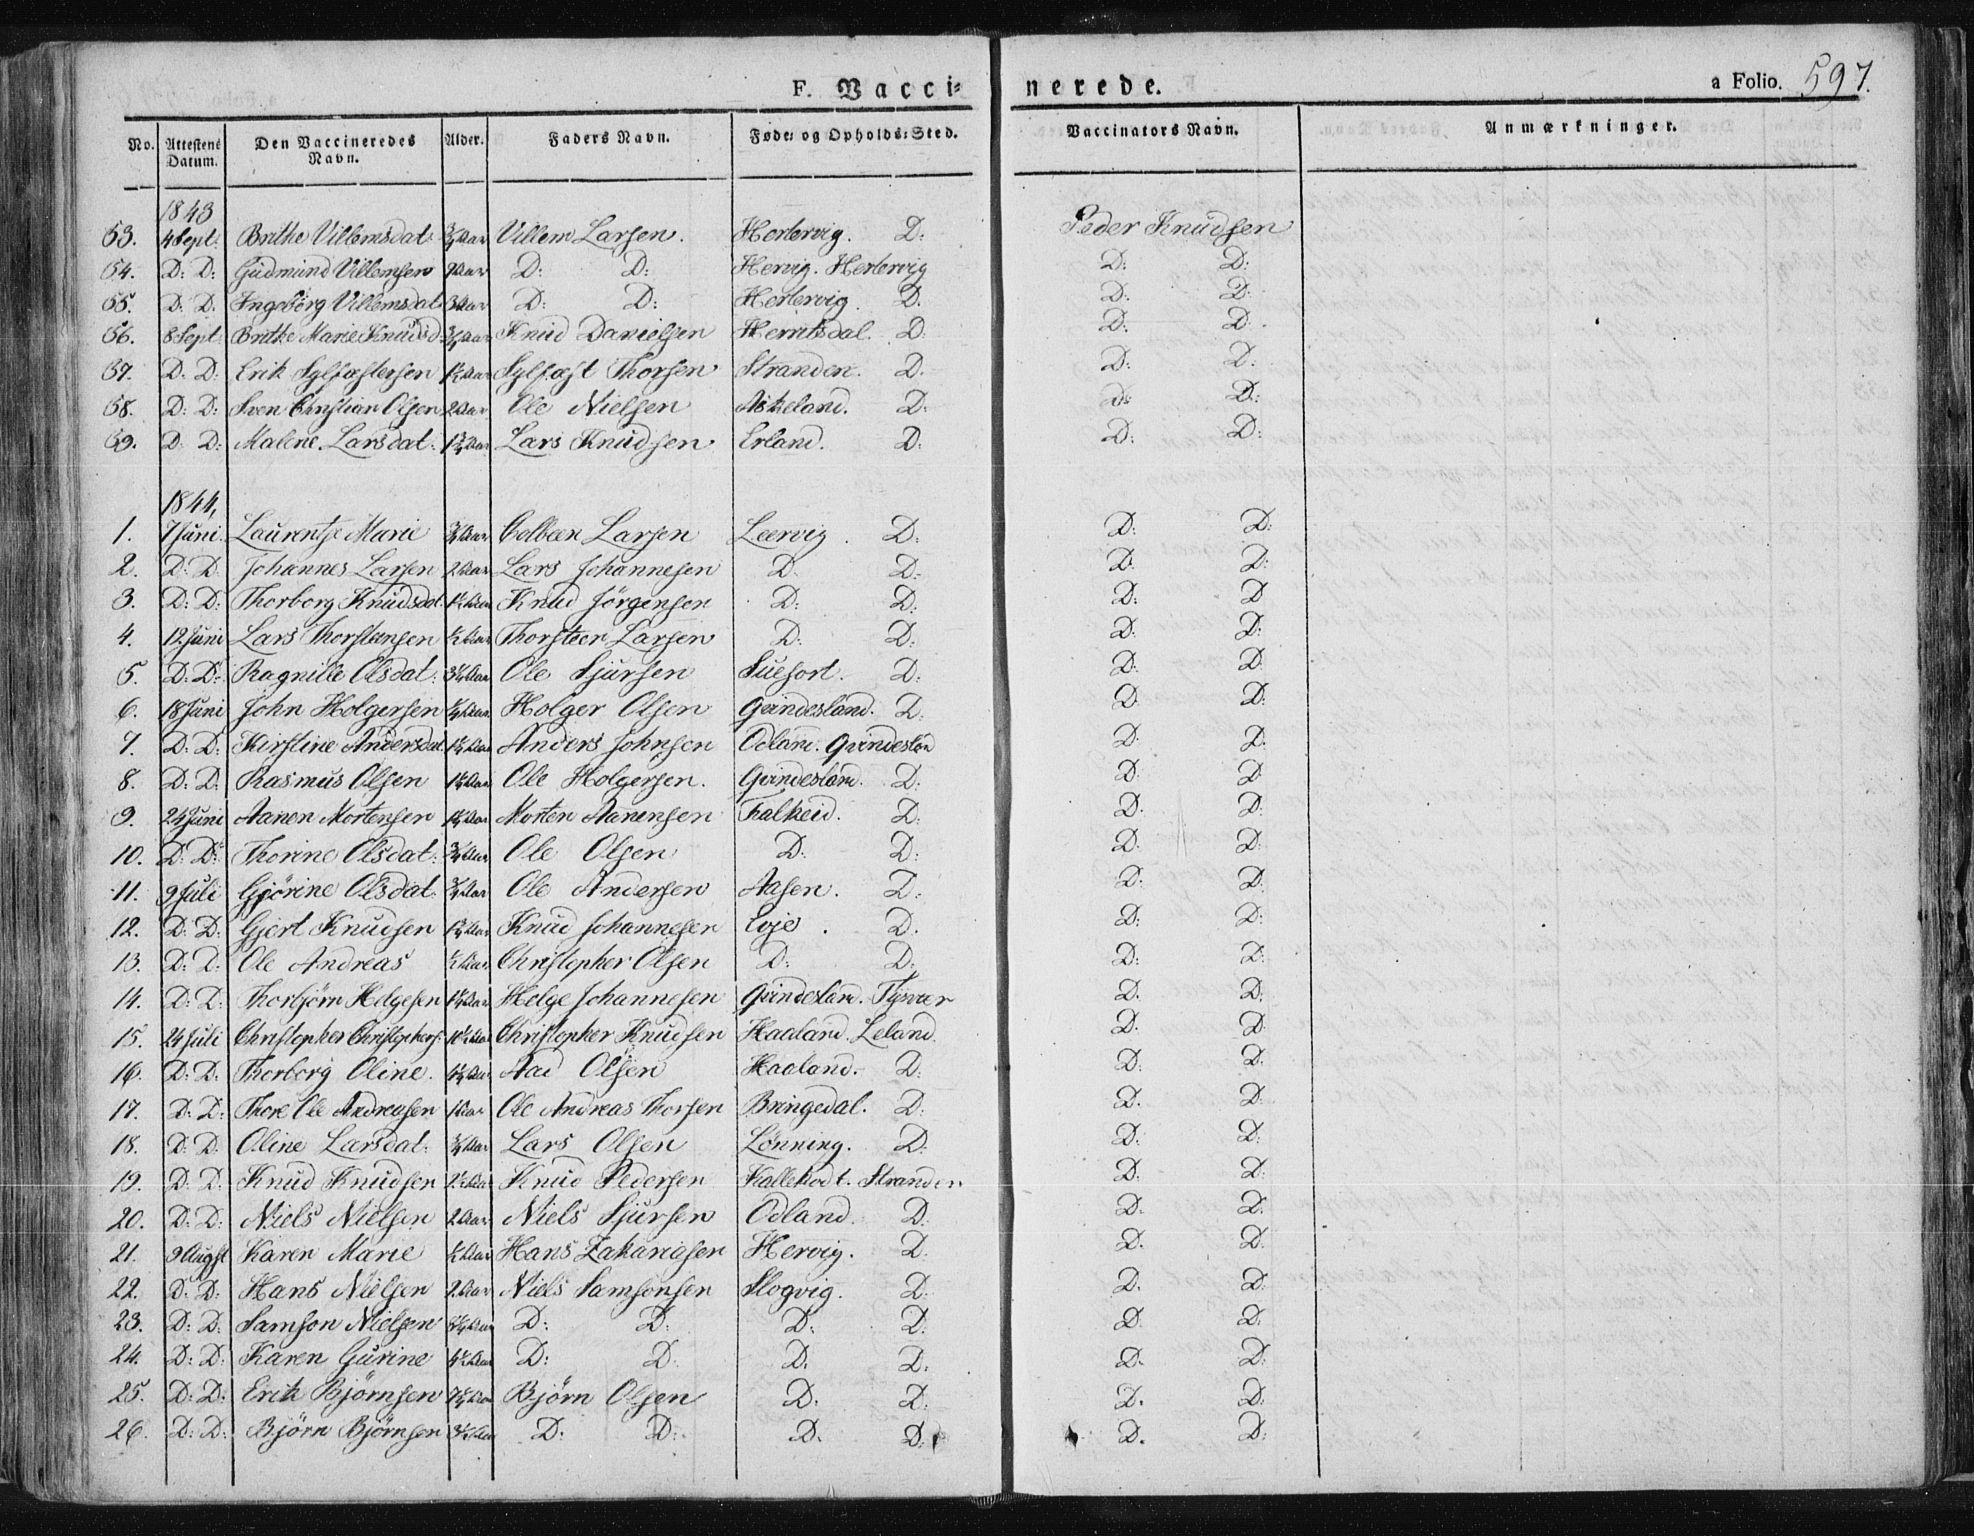 F. Vacci=
nerede.
a Folio. 597.
No. Attestens Datum. Den Vaccineredes Navn. Alder. Faders Navn. Føde= og Opholds=Sted. Vaccinators Navn. Anmærkninger.
1843
63. 4 Sept. Brithe Villemsdat. 3/4 Aar Villem Larsen. Hertervig. D: Peder Knudsen
64. D: D: Gudmund Villemsen Aar D: D: Hervig. Hertervig D: D:
65. D: D: Ingebørg Villemsdat. Aar D: D: Hertervig. D. D: D:
66. 8 Sept. Brithe Marie Knudsd. Aar Knud Danielsen D. D: D.
67. D. D: Erik Sylfæstersen 1½ Aar Sylfæst Thorsen Stranden. D. D: D.
68. D: D: Sven Christian Olsen 2 Aar Ole Nielsen Askeland. D: D: D:
69. D: D: Malene Larsdat. Aar Lars Knudsen Erland. D: D: D:
1844,
1. 7 Juni. Laurentse Marie 3/4 Aar Colbeen Larsen Leervig. D: D: D:
2. D: D. Johannes Larsen 2 Aar Lars Johannesen D. D: D: D:
3. D: D: Thorborg Knudsdat. 1½ Aar Knud Jörgensen D: D: D: D
4. 12 Juni Lars Thorsteensen ½ Aar Thorsteen Larsen D: D: D: D:
5. D: D: Ragnille Olsdat. 3½ Aar Ole Sjursen Suefort. D: D: D
6. 18 Juni John Holgersen Aar Holger Olsen Qvindesland. D. D D:
7. D: D: Kirstine Andersdat. Aar Anders Johnsen Odland. Qvindeslan D. D.
8. D: D: Rasmus Olsen Aar Ole Holgersen. Qvindesland. D: D D
9. 24 Juni Aanen Mortensen Aar Morten Aanensen Falkeid. D: D: D:
10. D: D: Thorine Olsdat. 3/4 Aar Ole Olsen D: D: D: D:
11. 9 Juli Gjörine Olsdat. 3/4 Aar Ole Andersen Aasen. D: D: D:
12. D: D: Gjert Knudsen Aar Knud Johannesen Evje. D. D: D:
13. D: D: Ole Andreas ½ Aar Christopher Olsen D: D: D: D:
14. D: D: Thorbjörn Helgesen Aar Helge Johannesen Qvindesland. Tysvær D. D:
15. 24 Juli Christopher Christophers. Aar Christopher Knudsen Haaland. Leland. D. D
16. D: D. Thorborg Oline. Aar Aad Olsen Haaland. D: D: D.
17. D: D: Thore Ole Andreasen 1 Aar Ole Andreas Thorsen Bringedal. D: D. D:
18. D: D. Oline Larsdat. 3/4 Aar Lars Olsen Lönning. D. D: D:
19. D: D. Knud Knudsen Aar Knud Pedersen Kallekodt. Stranden D: D:
20. D: D: Niels Nielsen 2 Aar Niels Sjursen Odland. D. D: D.
21. 9 Augst Karen Marie ½ Aar Hans Zakariasen Hervig. D. D. D.
22. D: D: Hans Nielsen 2 Aar Niels Samsonsen Slogvig. D. D. D:
23. D: D: Samson Nielsen Aar D: D. D: D. D D:
24. D: D: Karen Gurine 4½ Aar D: D. D. D. D. D:
25. D: D: Erik Björnsen 7½ Aar Björn Olsen D. D. D. D:
26. D: D: Björn Björnsen 3½ Aar D. D. D. D. D. D: